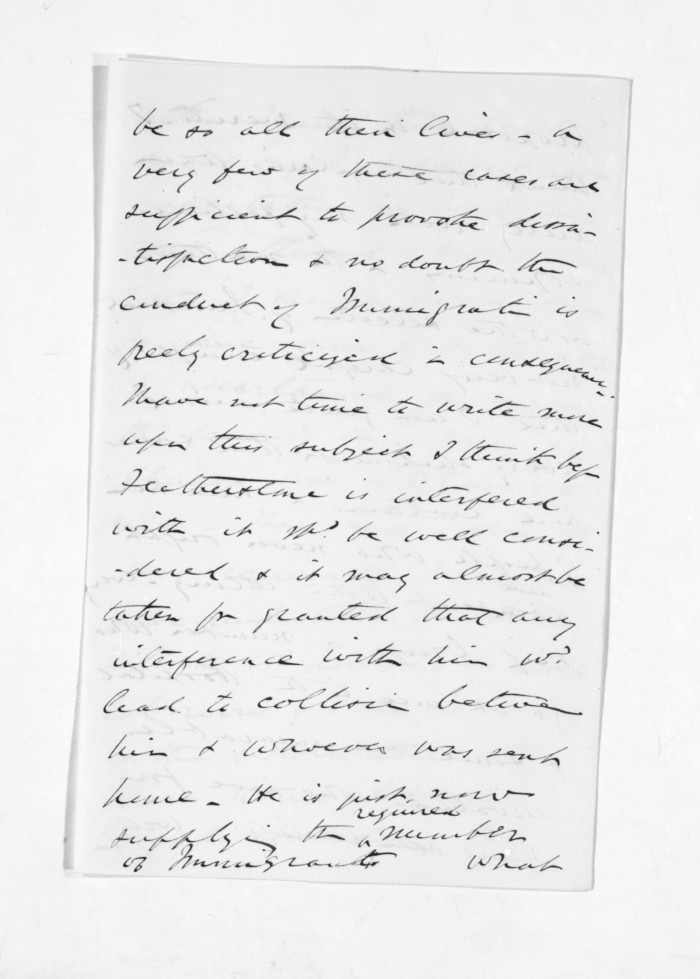 be so all their lives - A
very few of these cases are
sufficient to provoke dissa-
-tisfaction & no doubt the
conduct of Immigratn is
freely criticized in consequence.
I have not time to write more
upon this subject I think bef
Featherstone is interfered
with it shd. be well consi-
-dered & it may almost be
taken for granted that any
interference with him wd.
lead to collision between
him & whoever was sent
home - He is just now
supplying the required number
of Immigrants what